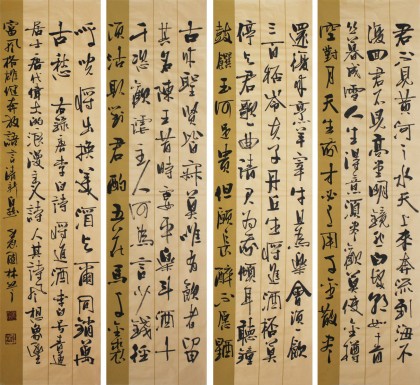 君不見黃河之水天上來奔流到海不
復回君不見高堂明鏡悲白髮朝如青
絲暮成雪人生得意須盡歡莫使金樽
空對月天生我材必有用千金散盡
還復來烹羊宰牛且為樂會須一飲
三百杯岑夫子丹丘生將進酒杯莫
停與君歌一曲請君為我傾耳聽鐘
鼓饌玉何足貴但願長醉不願醒
古來聖賢皆寂寞唯有飲者留
其名陳王昔時宴平樂斗酒十
千恣歡謔主人何為言少錢徑
須沽取對君酌五花馬千金裘
呼兒將出換美酒與爾同銷萬
古愁 錄唐李白詩將進酒李白号青蓮
居士唐代偉大的浪漫主义詩人其詩想象豐
富風格雄健奔放語言清新自然 林